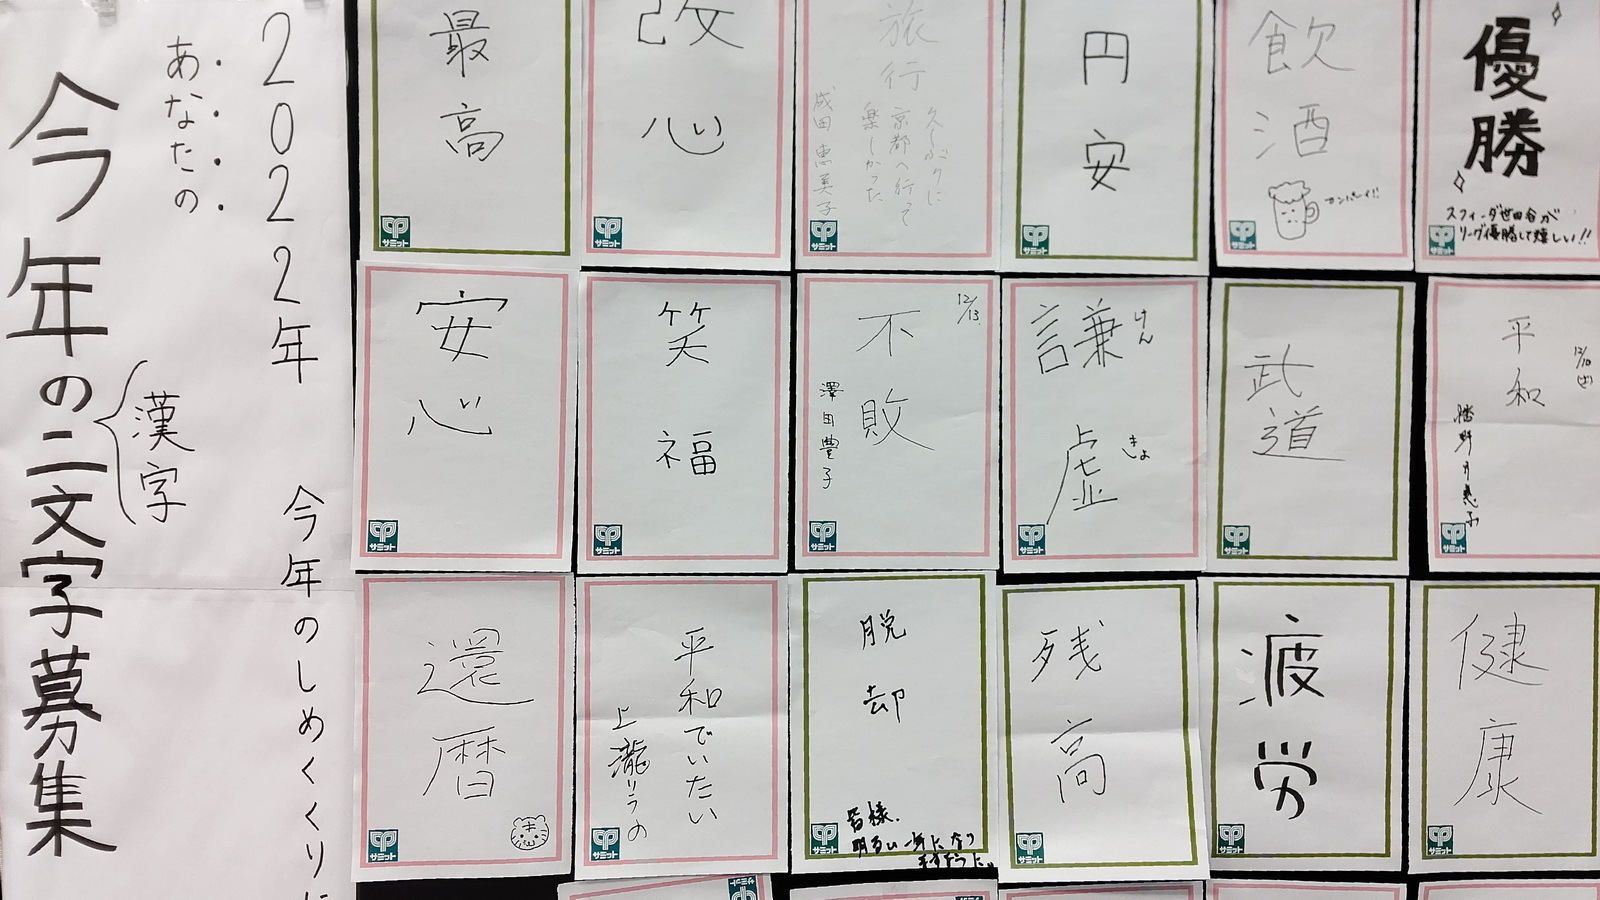 2022年
あなたの
今年の二文字募集
漢字
今年のしめくくりに
最高
サミット
改心
サミット
旅行
久しぶりに
京都へ行って
楽しかった
成田恵美子
サミット
円安
サミット
飲酒
カンパーイ!!
サミット
優勝
スフィーダ世田谷が
リーグ優勝して嬉しい!!
サミット
安心
サミット
笑福
サミット
12/13
不敗
澤田豊子
サミット
謙虚
けん
きょ
サミット
武道
サミット
平和
12/10(土)
サミット
還暦
サミット
平和でいたい
サミット
脱却
皆様、
明るい一年になり
ますように。
サミット
残高
サミット
疲労
サミット
健康
サミット
サミット